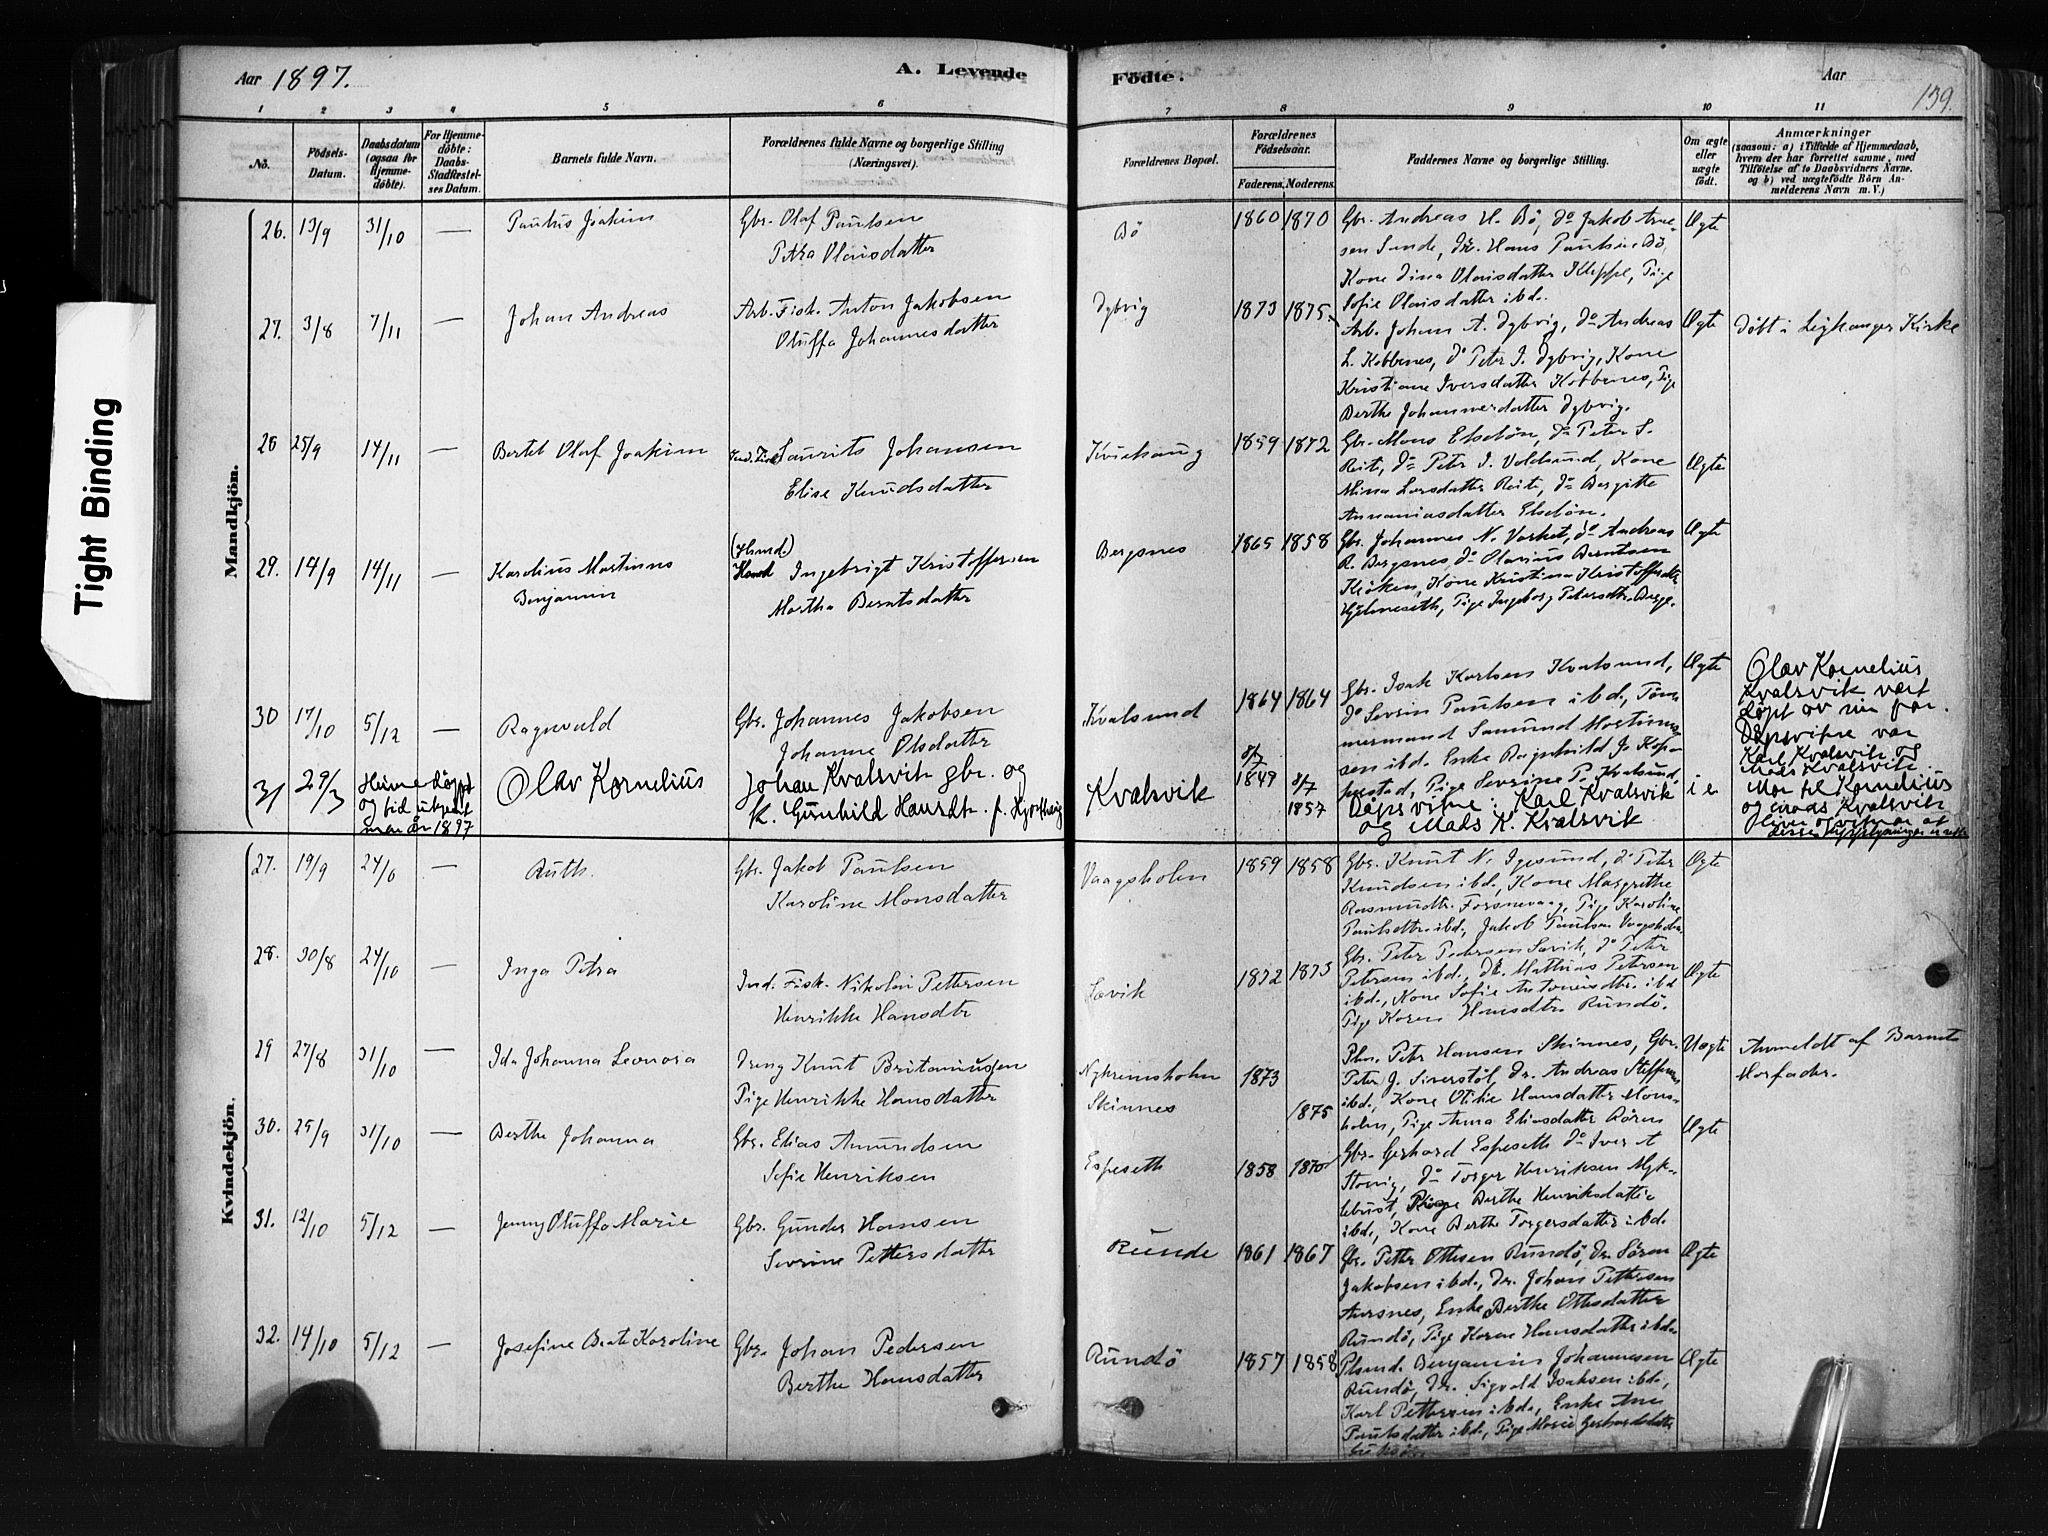 Aar 1897.
A. Levende Födte.
Aar
139.
1 2 3 4 5 6 7 8 9 10 11
No.
Födsels-Datum.
Daabsdatum (ogsaa for Hjemmedöbte).
For Hjemmedöbte: Daabs-Stadfæstelses Datum.
Barnets fulde Navn.
Forældrenes fulde Navne og borgerlige Stilling (Næringsvei).
Forældrenes Bopæl.
Forældrenes Födselsaar.
Faderens. Moderens.
Faddernes Navne og borgerlige Stilling.
Om ægte eller uægte födt.
Anmærkninger
(saasom: a) i Tilfælde af Hjemmedaab, hvem der har forrettet samme, med Tilföielse af to Daabsvidners Navne. og b) ved uægtefödte Börn Anmelderens Navn m. V.)
Tight Binding
Mandkjön.
26. 13/9 31/10 — Paulus Joakim
Gbr. Olaf Paulsen
Petra Olaisdatter
Bö 1860 1870
Gbr. Andreas H. Bö, do Jakob Arne-
sen Sande, Dr. Hans Paulsen Bö,
Kone Dina Olaisdatter Kleppe, Pige
Sofie Olaisdatter ibd.
Ægte
27. 3/8 7/11 — Johan Andreas
Arb. Fisk. Anton Jakobsen
Oluffa Johannesdatter
Dybvig 1873 1875
Arb. Johan A. Dybvig, do Andreas
L. Kobbenes, do Peter J. Dybvig, Kone
Kristiane Iversdatter Kobbenes, Pige
Berthe Johannesdatter Dybvig.
Ægte
Döbt i Leikanger Kirke
28 25/9 14/11 — Bertel Olaf Joakim
Ind. Fisk. Laurits Johansen
Elise Knudsdatter
Kvichaug 1859 1872
Gbr. Mons Elsebön, do Peter S.
Reite, do Peter J. Voldsund, Kone
Mina Larsdatter Reite, do Bergitte
Annaniasdatter
Ægte
29. 14/9 14/11 — Karolius Martinus
Benjamin
Ingebrigt Kristoffersen
Martha Berntsdatter
Bergsnes 1865 1858
Gbr. Johannes N. Vorket, do Andreas
R. Bergsnes, do Olarius Berntsen
Kjöken, Kone Kristina Kristoffersdtr
Hjelmeseth, Pige Ingeborg Petersdtr. Berge.
Ægte
30 17/10 5/12 — Ragnvald
Gbr. Johannes Jakobsen
Johanne Olsdatter
Kvalsund 1864 1864
Gbr. Isak Karlsen Kvalsund,
do Severin Paulsen ibd, Töm-
mermand Samund Martinus-
sen ibd. Enke Ragnhild J. Kopa-
, Pige Severine P. Kvalsund.
Ægte
31 29/3 Heimedöypt
og tid utgent
man år 1897
Olav Kornelius
Johan Kvalsvik gbr. og
k. Gunhild Hansdt. f. Hjorthaug
Kvalsvik 8/7 1849 8/7 1857
Döpsvitne: Karl Kvalsvik
og Mads K. Kvalsvik
Olav Kornelius
Kvalsvik vart
döpt av sin far.
Döpsvitne var
Karl Kvalsvik og
Mads Kvalsvik.
Mor til Kornelius
og Mads Kvalsvik
disse upplysninger er rette
Kvindekjön.
27. 19/9 24/ Ruth.
Gbr. Jakob Paulsen
Karoline Monsdatter
Vaagsholm 1859 1858
Gbr. Knut N. Igesund, do Peter
Knudsen ibd., Kone Margrethe
Rasmusdtr. Forsnevaag, Pige Karoline
Paulsdtr. ibd., Jakob Paulsen Vaagsholm.
Ægte
28. 30/8 24/10 — Inga Petra
Ind. Fisk. Nikolai Pettersen
Henrikke Hansdtr
Lavik 1872 1873
Gbr. Peter Pedersen Lavik, do Peter
Petersen ibd., Dr. Mathias Petersen
ibd., Kone Sofie Antonisdtr. ibd
Pige Karen Hansdtr. Rundö.
Ægte
29 27/8 31/10 — Ida Johanna Leonora
Dreng Knut Britanussen
Pige Henrikke Hansdatter
Nykreimsholm 1873
Skinnes 1875
Plm. Peter Hansen Skinnes, Gbr.
Peter J. Siverstöl, Dr. Andreas Steffensen
ibd., Kone Otilie Hansdatter Mons-
holm, Pige Anna Eliasdatter
Uægte
Anmeldt af Barnets
Morfader.
30. 25/9 31/10 — Berthe Johanna
Gbr. Elias Amundsen
Sofie Henriksen
Espeseth 1858 1870
Gbr. Gerhard Espeseth do Iver A
Storvig, do Torger Henriksen Myk-
lebust, Pige Berthe Henriksdatter
ibd., Kone Berthe Torgersdatter ibd.
Ægte
31. 12/10 5/12 — Jenny Oluffa Marie
Gbr. Gunder Hansen
Severine Pettersdatter
Runde 1861 1867
Gbr. Petter Ottesen Rundö, Dr. Sören
Jakobsen ibd., Dr. Johan Pettersen
Aursnes, Enke Berthe Ottesdatter
Rundö, Pige Karen Hansdatter ibd.
Ægte
32. 14/10 5/12 — Josefine Beate Karoline
Gbr. Johan Pedersen
Berthe Hansdatter
Rundö 1857 1858
Plsmd. Benjamin Johannesen
Rundö, Dr. Sigvald Isaksen ibd.,
Karl Pettersen ibd., Enke Ane
Paulsdatter ibd., Pige Marie Gerhardsdatter
Ægte